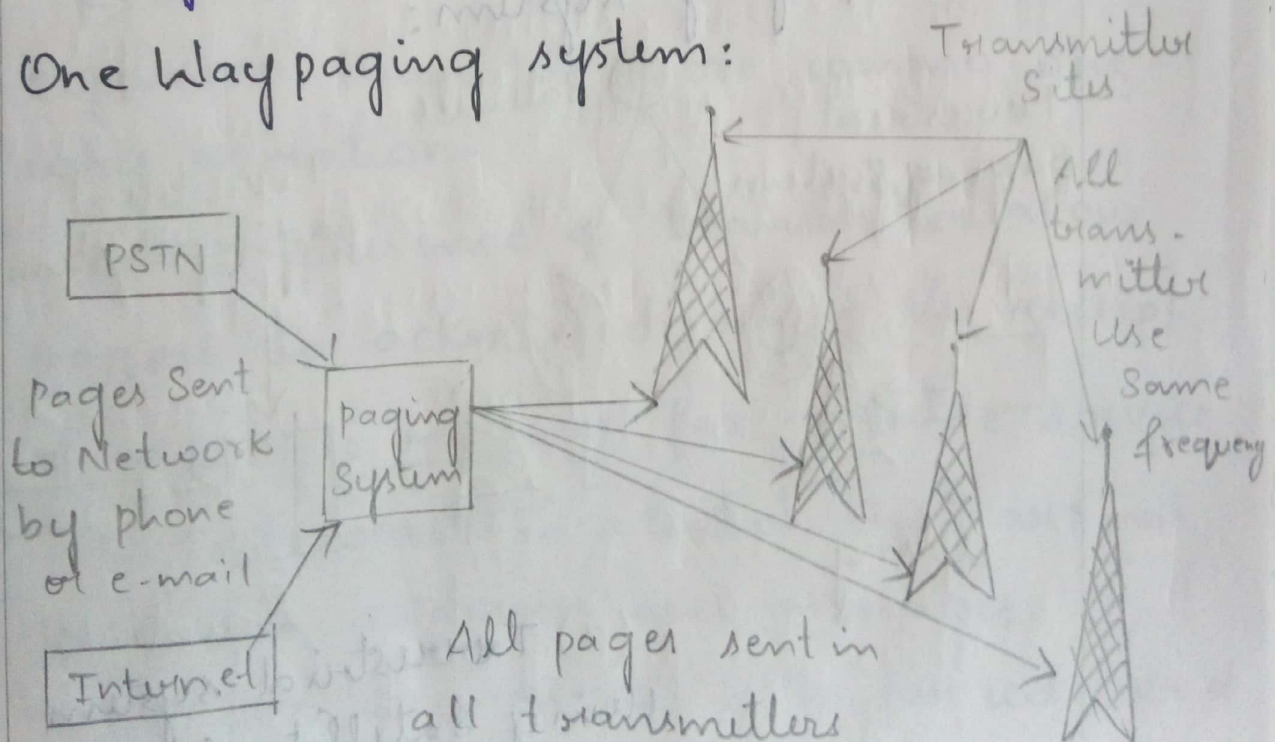 One Way paging system:
Transmitter
Sites
All
trans-
mitter
Use
Same
frequency
PSTN
Pages Sent
to Network
by phone
or e-mail
paging
System
Internet
All pages sent in
all transmitters